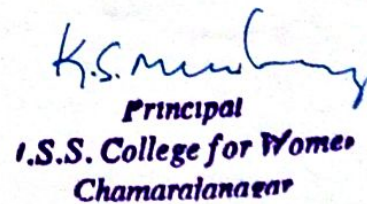 K.S.
Principal
.S.S. College for Wome
Chamarajanagar